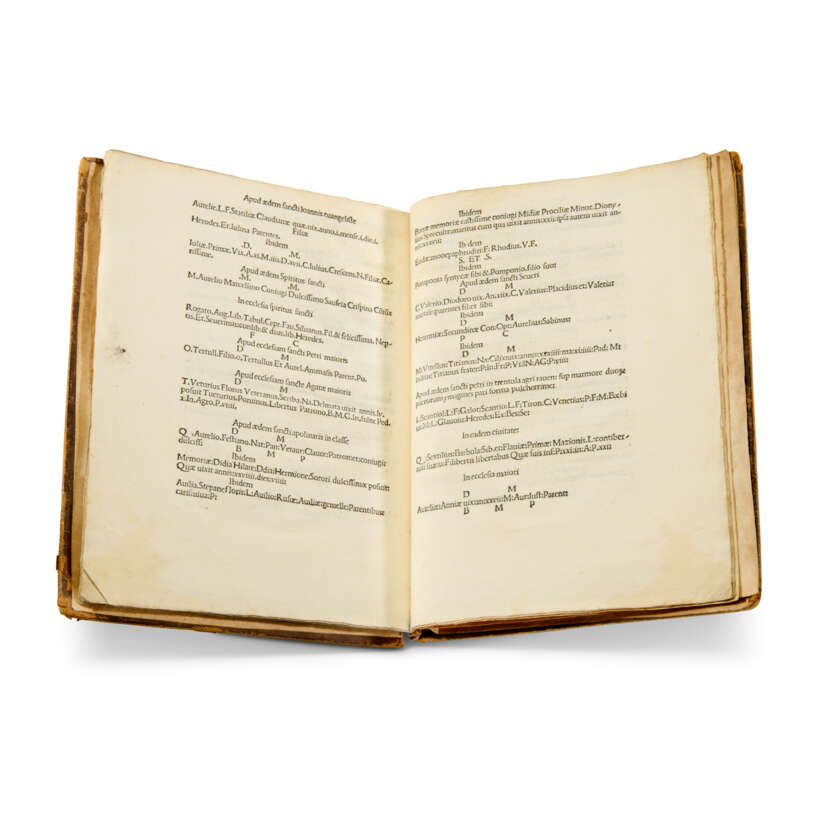 Apud ædem sancti Ioannis euangeliste
Aurelie.L.F.Statiliæ Claudianæ quæ.uix.anno.i.mens.i.die.i.
Filiæ
Herodes.Et.Iulina Parentes.
Ibidem
.D. .M.
Iuliæ.Primæ.Vix.A.xl.M.iii D.xvi.C.Iulius.Crescens.N.Filiæ.Ca-
rissime.
Apud ædem Spiritus sancti
.M. .M.
M.Aurelio Marcellino Coniugi Dulcissimo Saufeia Crispina
In ecclesia spiritus sancti
Rogato.Aug.Lib.Tabul.Cypr.Fau.Siluanus.Fil.& felicissima.Nep-
tis.Et.Seuerinus & Heredes.
F C
Apud ecclesiam sancti Petri maioris
D M
O.Tertull.Filio.o.Tertullus Et Aurel.Animasis Parent.Po.
Apud ecclesiam sancte Agatæ maioris
D M
T.Veturius Florus Veteranus.Scriba.Na.De.nata uixit annis.lv.
posuit Tueturius.Pontinus.Libertus Patrono.B.M.G.In.fronte Ped.
x.In.Agro.P.viiii.
Apud ædem sancti apolinaris in classe
D M
Q.Aurelio.Festiano.Nat:Pan:Veran:Claue:Patromet:coniugit
dulcissi
B M P
Memoriæ:Didia:Hilare:Ddia:Hermione:Sorori dulcissimæ posuit
Quæ uixit annis xxviiii.die.xviiii
Ibidem
Aulia.Stepane slopir:L:Aulio:Rusæ:Auliæ:genelle:Parentibus
carissiuius:P:
Ibidem
Bonæ memoriæ castissime coniugi Midiæ Prociliæ Minor.Diony-
sius Specul:tramaritus cum qua uixit annis xxii ipsa autem uixit an-
Ib dem
Euditæmonepaphrudit:F:Rhodius.V.F.
S. ET .S.
Ibidem
Pomponia syntycæ sibi &.Pomponio.filio suot
Apud ædem sancti Seueri
D M
C.Valerio.Diodoro uix.An.xiix.C.Valerius:Placidius et:Valeriat
parentes fil:et sibit
Ibidem
D M
Herenniæ:Secundinæ Con:Opt:Aurelius:Sabinust
P C
Ibidem
D M
M.Vitellinc Tirianus:frater:P:inFr:P:VIIN:AG:P:viiii
Apud ædem sancti petri in trentola agri rauen: sup marmore duoge
puerorum imagines pari forma pulcherrime:
L:Scantiol:L:F:Galot:Scantio:L:F:Tiron:C:Venetius:P:F:M:Bæbi
us:M:L:Glaucus:Heredes:Ex:Bet:Set
In eadem ciuitatet
Q.Sextilius:Barbola:Sib.et:Flauiæ:Primæ:Mationis.L:contiber-
suæ:Filibertis libertabus Quæ suis inf:P:xxi:in:Ai:P.xxii
In ecclesia maiori
D M
Aureliæ:Anniæ M:Aur:Iust:Parenti
B M P